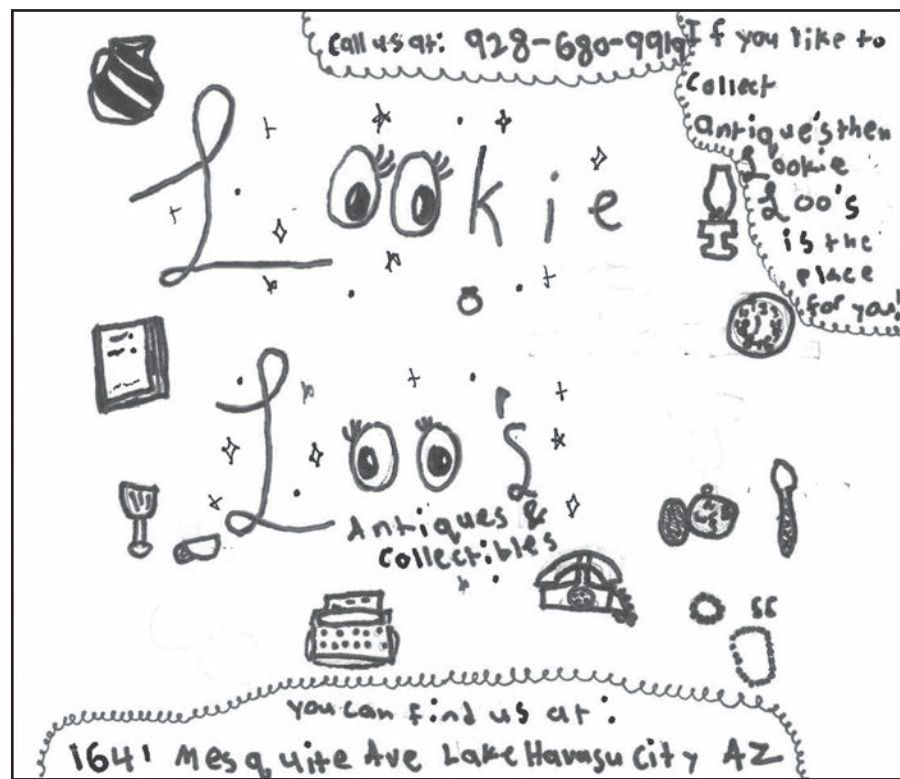 Call us at: 928-680-9919
If you like to
collect
antique's then
Lookie
Loo's
is the
place
for you!
Lookie
Loo's
Antiques &
Collectibles
you can find us at:
1641 Mesquite Ave Lake Havasu City AZ